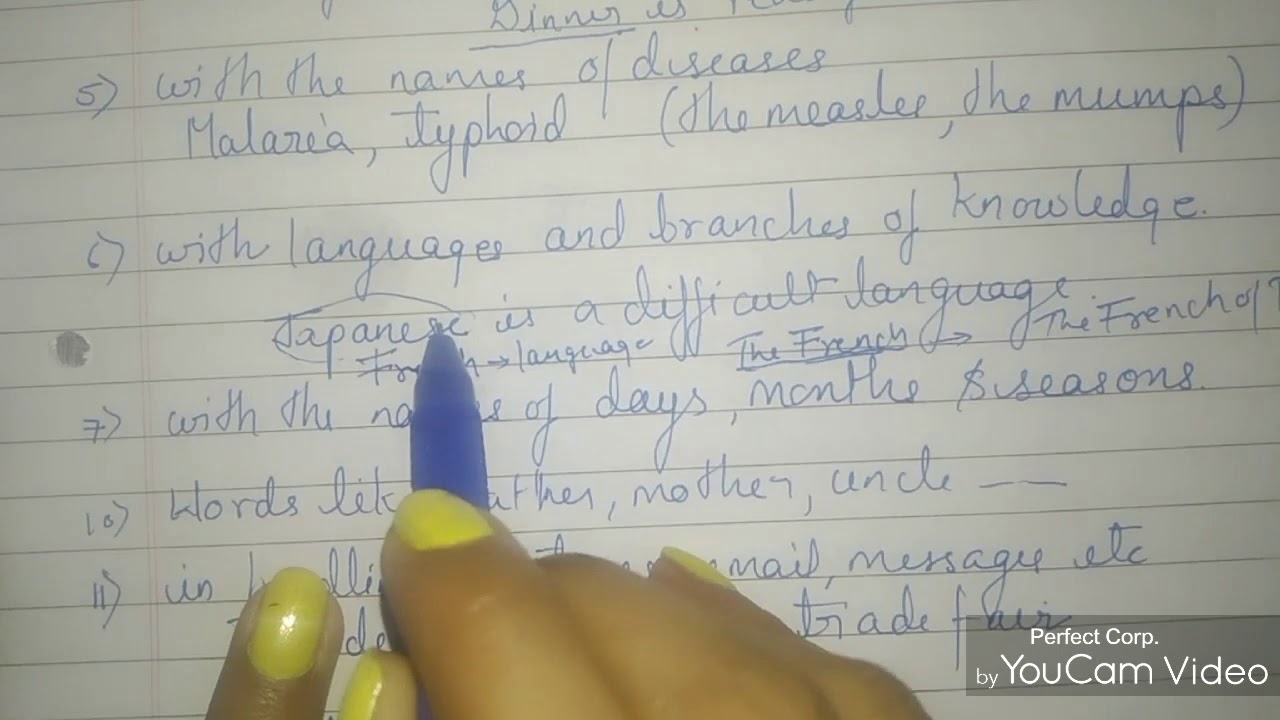 Dinner is
5) with the names of diseases
Malaria, typhoid (the measles, the mumps)
6) with languages and branches of knowledge.
Japanese is a difficult language
→ language The French → The French of
7) with the of days, months & seasons.
10) Words mother, uncle ——
11) in email, message etc
trade fair
Perfect Corp.
by YouCam Video